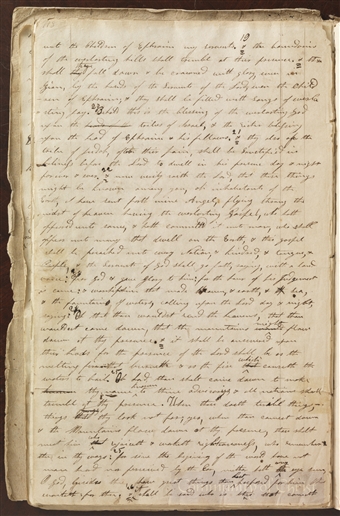 unto the children of Ephraim my servants & the boundaries
of the everlasting hills shall tremble at their presence & then
shall they fall down & be crowned with glory even in
Zion by the hands of the servants of the Lord even the child
ren of Ephraim & they shall be filled with songs of everla
sting joy Behold this is the blessing of the everlasting God
upon the tribes of Israel & the richer blessing
upon the head of Ephraim & his fellows & they also of the
tribe of Judah after their pain shall be sanctified in
holiness before the Lord to dwell in his presence day & night
forever & ever & now verily saith the Lord that these things
might be known among you oh inhabitants of the
earth I have sent forth mine Angel flying through the
midst of heaven having the everlasting Gospel who hath
appeared unto some & hath committed it unto man who shall
appear unto many that dwell on the earth & this gospel
shall be preached unto every Nation & kindred & tongue &
People & the servants of God shall go forth saying with a loud
voice fear God & give glory to him for the hour of his Judgement
is come & worship him that made heaven & earth & the sea
& the fountains of waters calling upon the Lord day & night
saying O that thou wouldest rend the heavens that thou
wouldest come down that the mountains might flow
down at thy presence & it shall be answered upon
their heads for the presence of the Lord shall be as the
melting fire that burneth & as the fire which causeth the
waters to boil O Lord thou shalt come down to make
thy name known to thine adversaries & all nations shall
tremble at thy presence When thou doeth terrible things
things they look not for yea when thou comest down
& the Mountains flow down at thy presence thou shalt
meet him who rejoiceth & worketh righteousness who remembereth
thee in thy ways for since the beginning of the world have not
men heard nor perceived by the ear neither hath any eye seen
O God besides thee how great things thou hast prepared for him that
waiteth for thee & it shall be said who is this that cometh